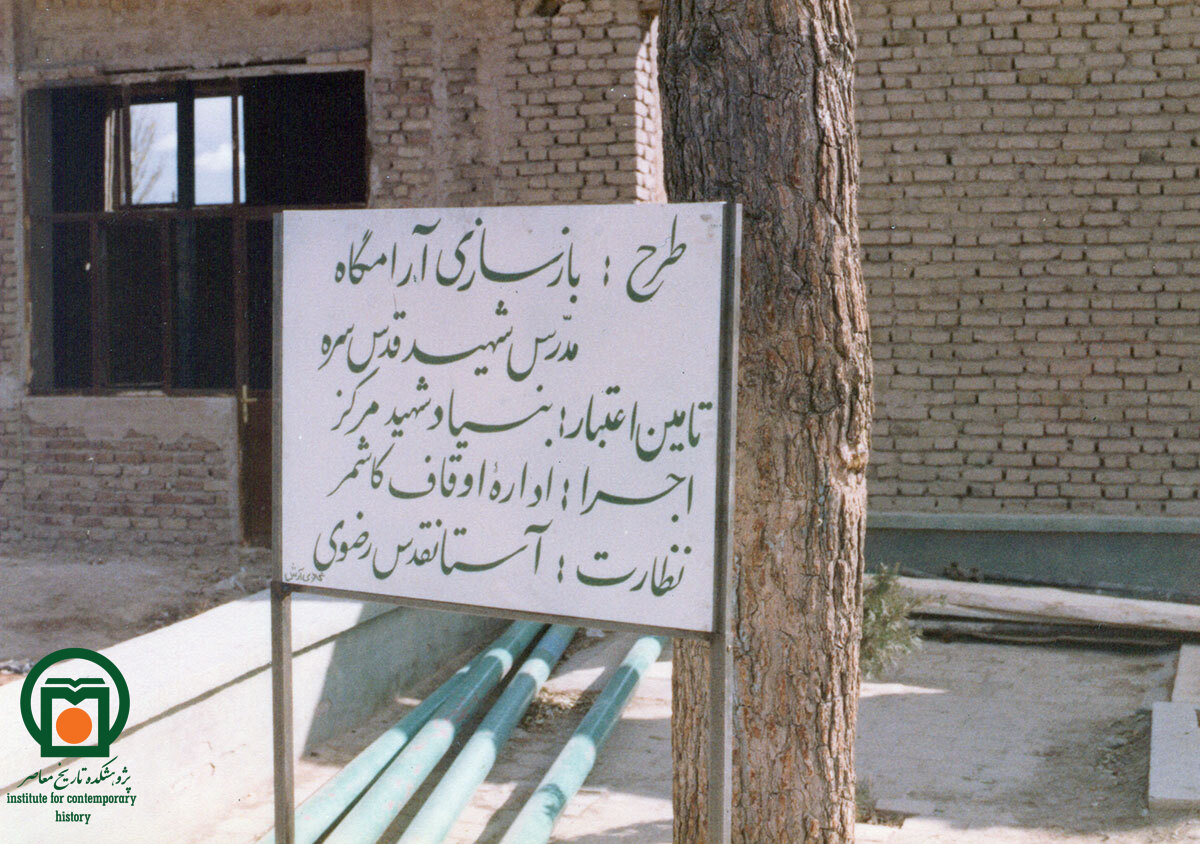 طرح : بازسازی آرامگاه
مدّرس شهید قدس سره
تامین اعتبار : بنیاد شهید مرکز
اجرا : ادارهٔ اوقاف کاشمر
نظارت : آستانقدس رضوی
پژوهشکده تاریخ معاصر
institute for contemporary
history